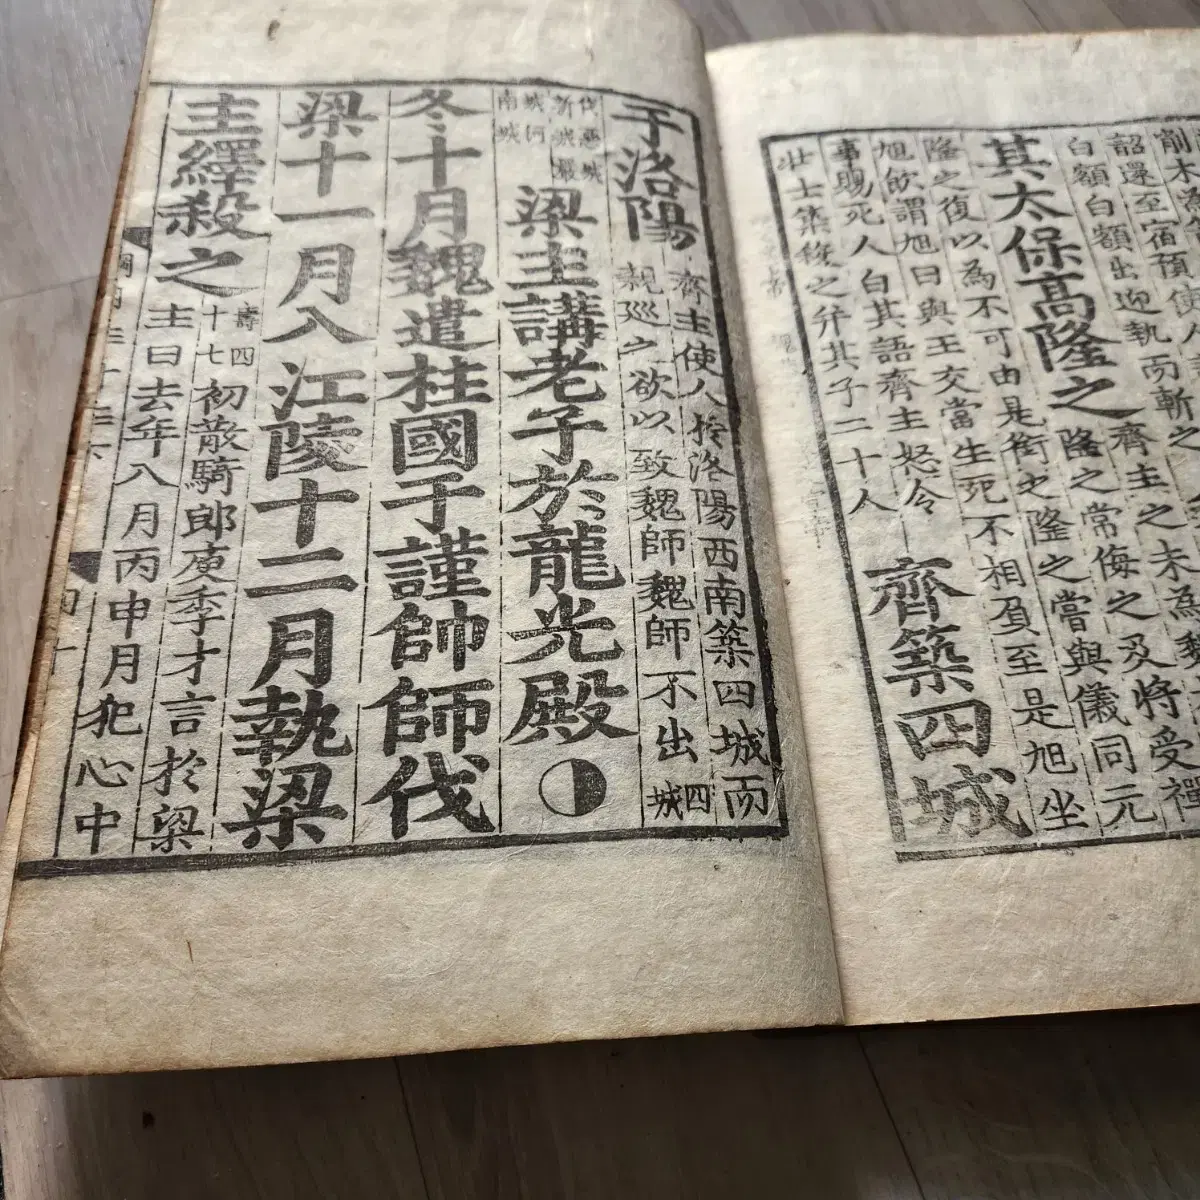 削木
詔還至宿預使人
白額白額出迎執而斬之
其太保高隆之齊主之未為魏
隆之常侮之及將受禪
隆之復以為不可由是銜之隆之嘗與儀同元
旭飲謂旭曰與王交當生死不相負至是旭坐
事賜死人白其語齊主怒令
壯士築殺之并其子二十人
齊築四城
于洛陽
齊主使人於洛陽西南築四城而
親巡之欲以致魏師魏師不出
四城
伐惡城
新城嚴
城河
南城
梁主講老子於龍光殿
冬十月魏遣柱國于謹帥師伐
梁十一月入江陵十二月執梁
主繹殺之
壽四
十七
初散騎郎庾季才言於梁
主曰去年八月丙申月犯心中